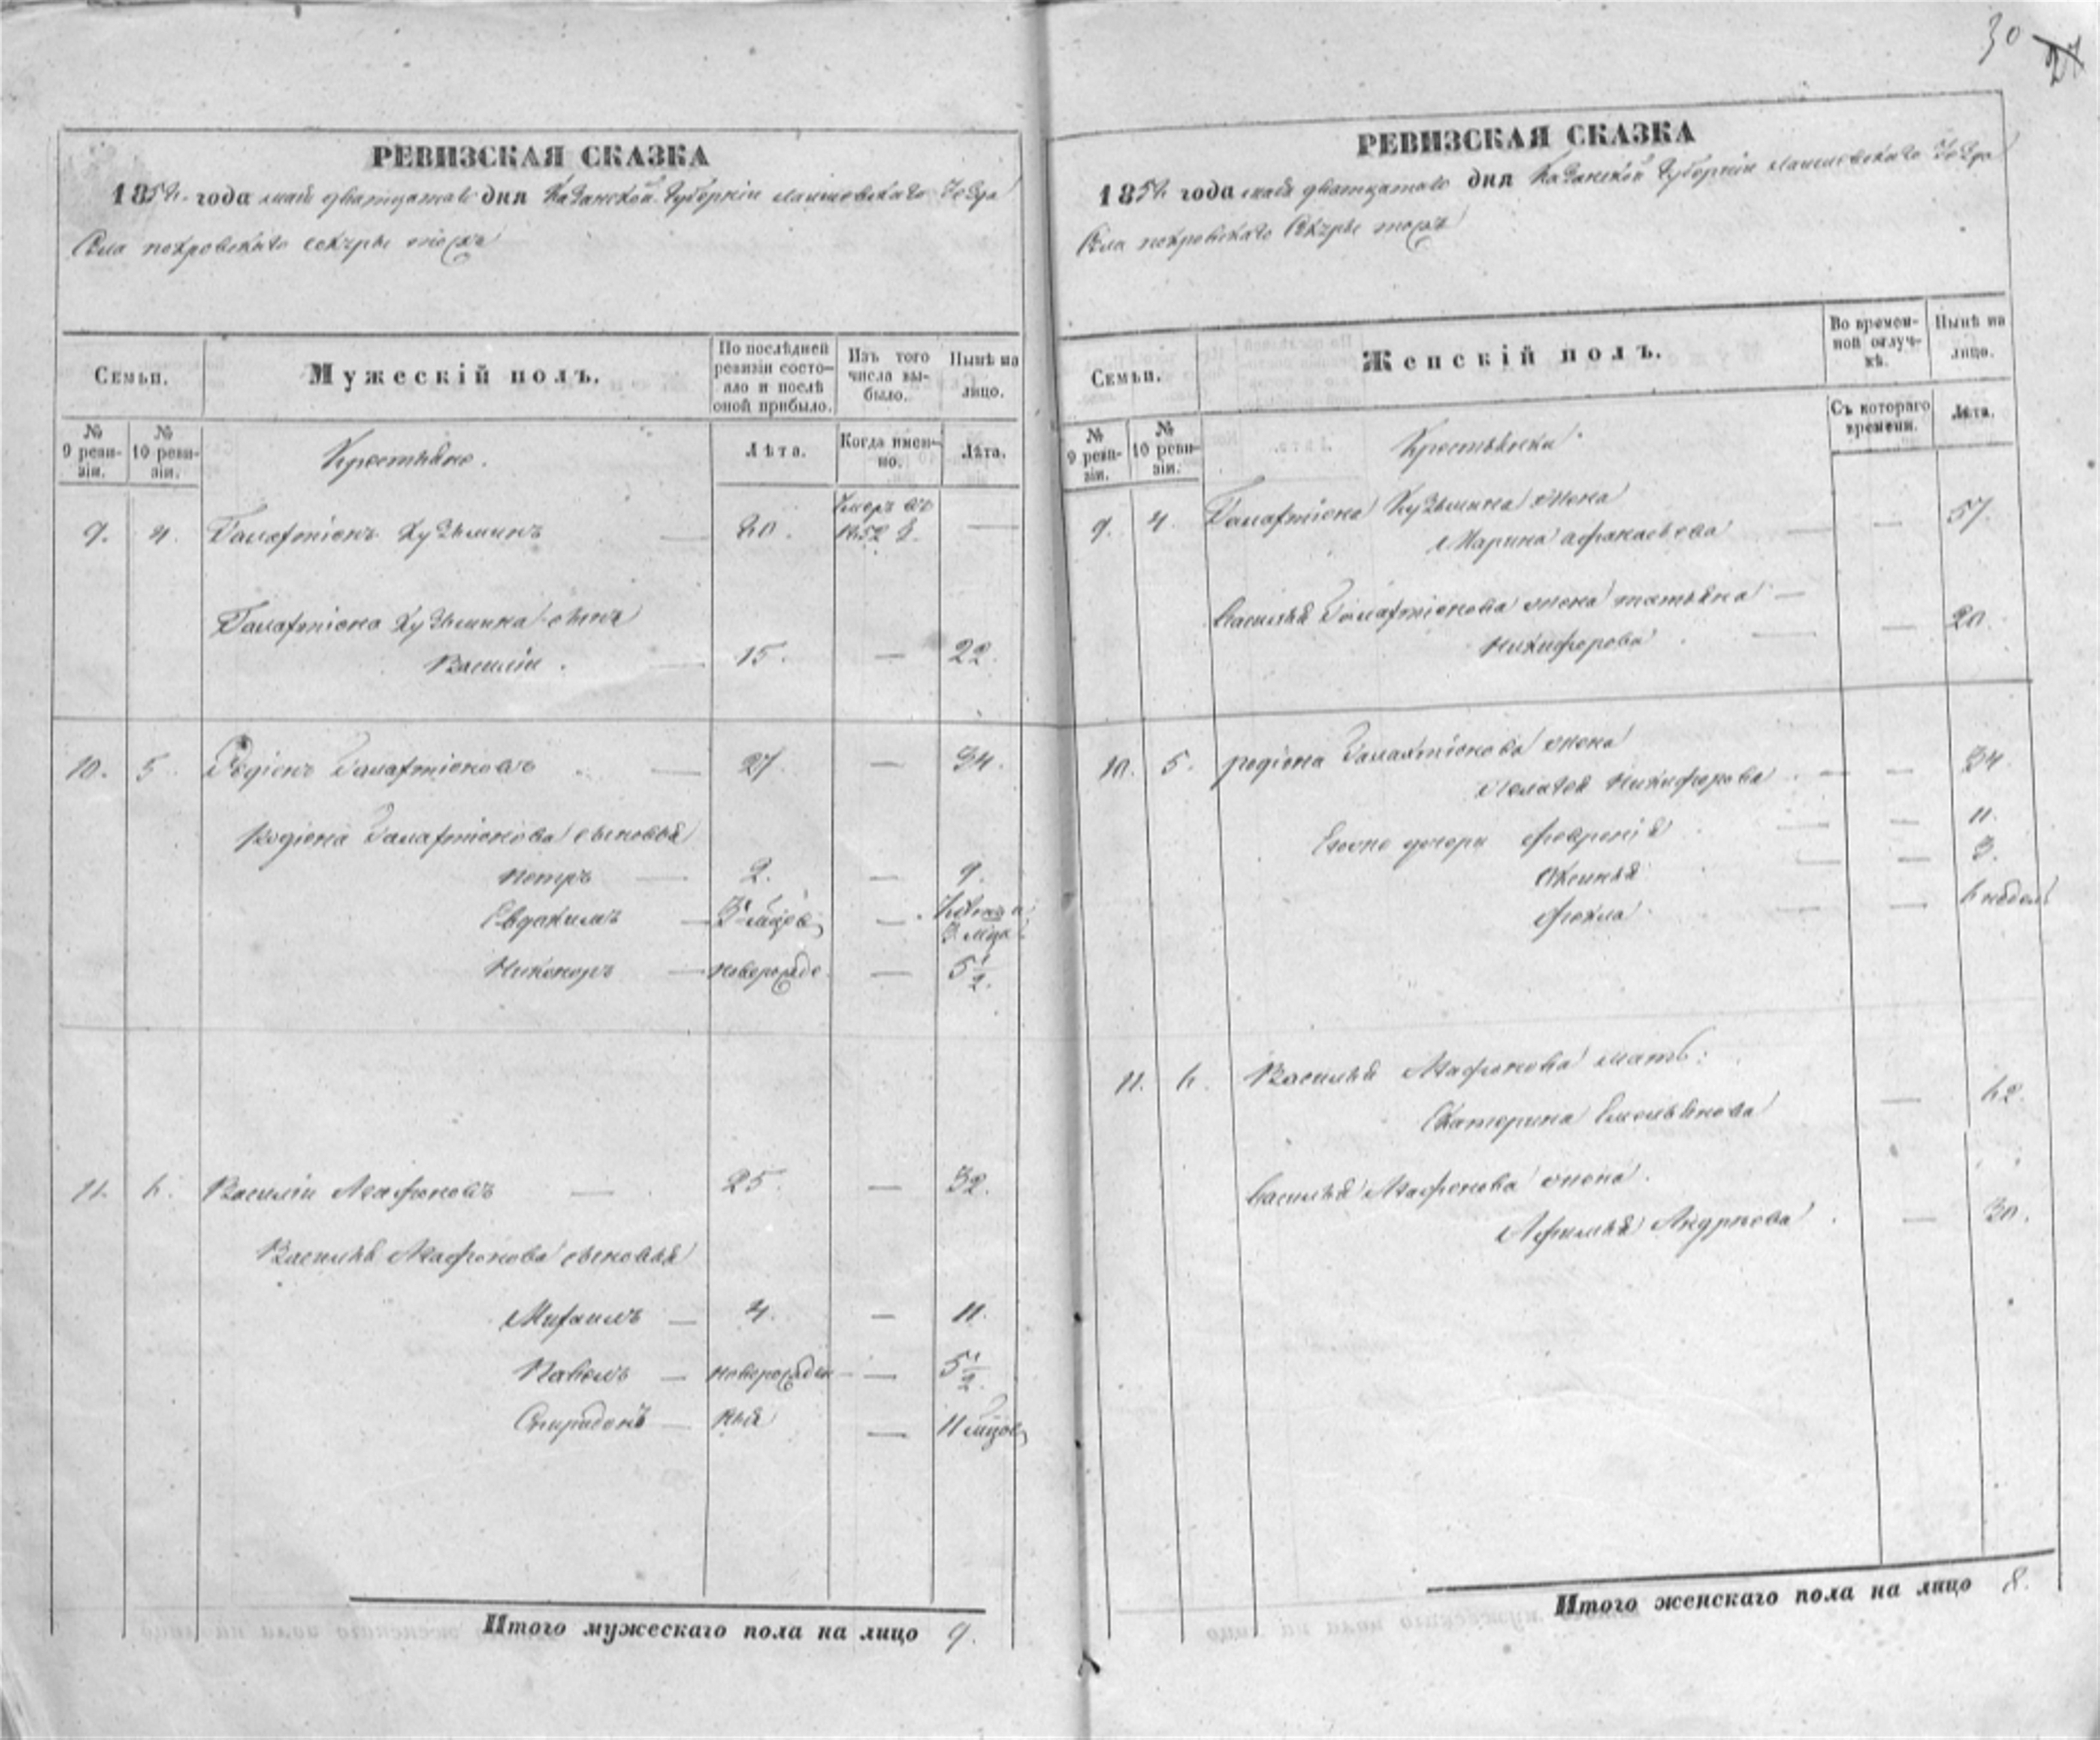 30
27
РЕВИЗСКАЯ СКАЗКА
185 года мая дватцатаго дня Казанской Губерніи Лаишевскаго Уезда
Села Покровскаго тожъ
Семьи.
Мужескій полъ.
По послѣдней ревизіи состояло и послѣ оной прибыло.
Изъ того числа выбыло.
Нынѣ на лицо.
№ 9 ревизіи.
№ 10 ревизіи.
Крестьяне.
Лѣта.
Когда именно.
Лѣта.
9. 4. Галафтіонъ Кузьминъ — 60. Умеръ въ 1852 г. —
Галафтіона Кузьмина сынъ
Василіи. — 15. — 22.
10. 5. Родіонъ Галафтіоновъ — 27. — 34.
Родіона Галафтіонова сыновья
Петръ — 2. — 9.
Евдокимъ — 3 —
3 мца
Никоноръ — новорожде. — 5 1/2.
11. 6. Василіи Мафоновъ — 25. — 32.
Василья Мафонова сыновья
Михаилъ — 4. — 11.
Павелъ — новорожден — 5 1/2.
Спиридонъ — ныя — 11 мцов
Итого мужескаго пола на лицо 9.
РЕВИЗСКАЯ СКАЗКА
185 года мая дватцатаго дня Казанской Губерніи Лаишевскаго Уезда
Села Покровскаго тожъ
Семьи.
Женскій полъ.
Во временной отлучкѣ.
Нынѣ на лицо.
№ 9 ревизіи.
№ 10 ревизіи.
Крестьянки.
Съ котораго времени.
Лѣта.
9. 4. Галафтіона Кузьмина жена
Марина Афанасьева — — 57.
Василья Галафтіонова жена татьяна —
Никифорова — — 20.
10. 5. родіона Галафтіонова жена
Пелагея Никифорова — — 34.
дочери Февронія — — 11.
Аксинья — — 3.
Фекла — — 6 недель
11. 6. Василья Мафонова мать:
Екатерина Емельянова — 62.
Василья Мафонова жена.
Афимья Андреева — 30.
Итого женскаго пола на лицо 8.